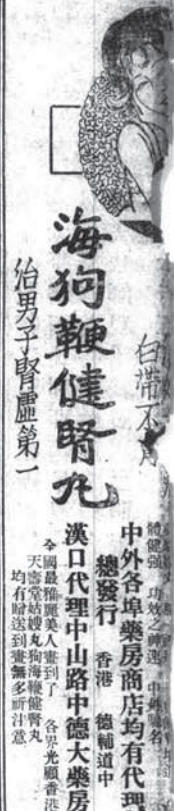 白帶不
海狗鞭健腎丸
治男子腎虛第一
體健強 功效之神速 中外馳名
中外各埠藥房商店均有代理
總發行 香港 德輔道中
漢口代理中山路中德大藥房
全國最雅麗美人畫到了 各界光顧香港
天壽堂姑嫂丸海狗鞭健腎丸
均有贈送到畫無多祈注意